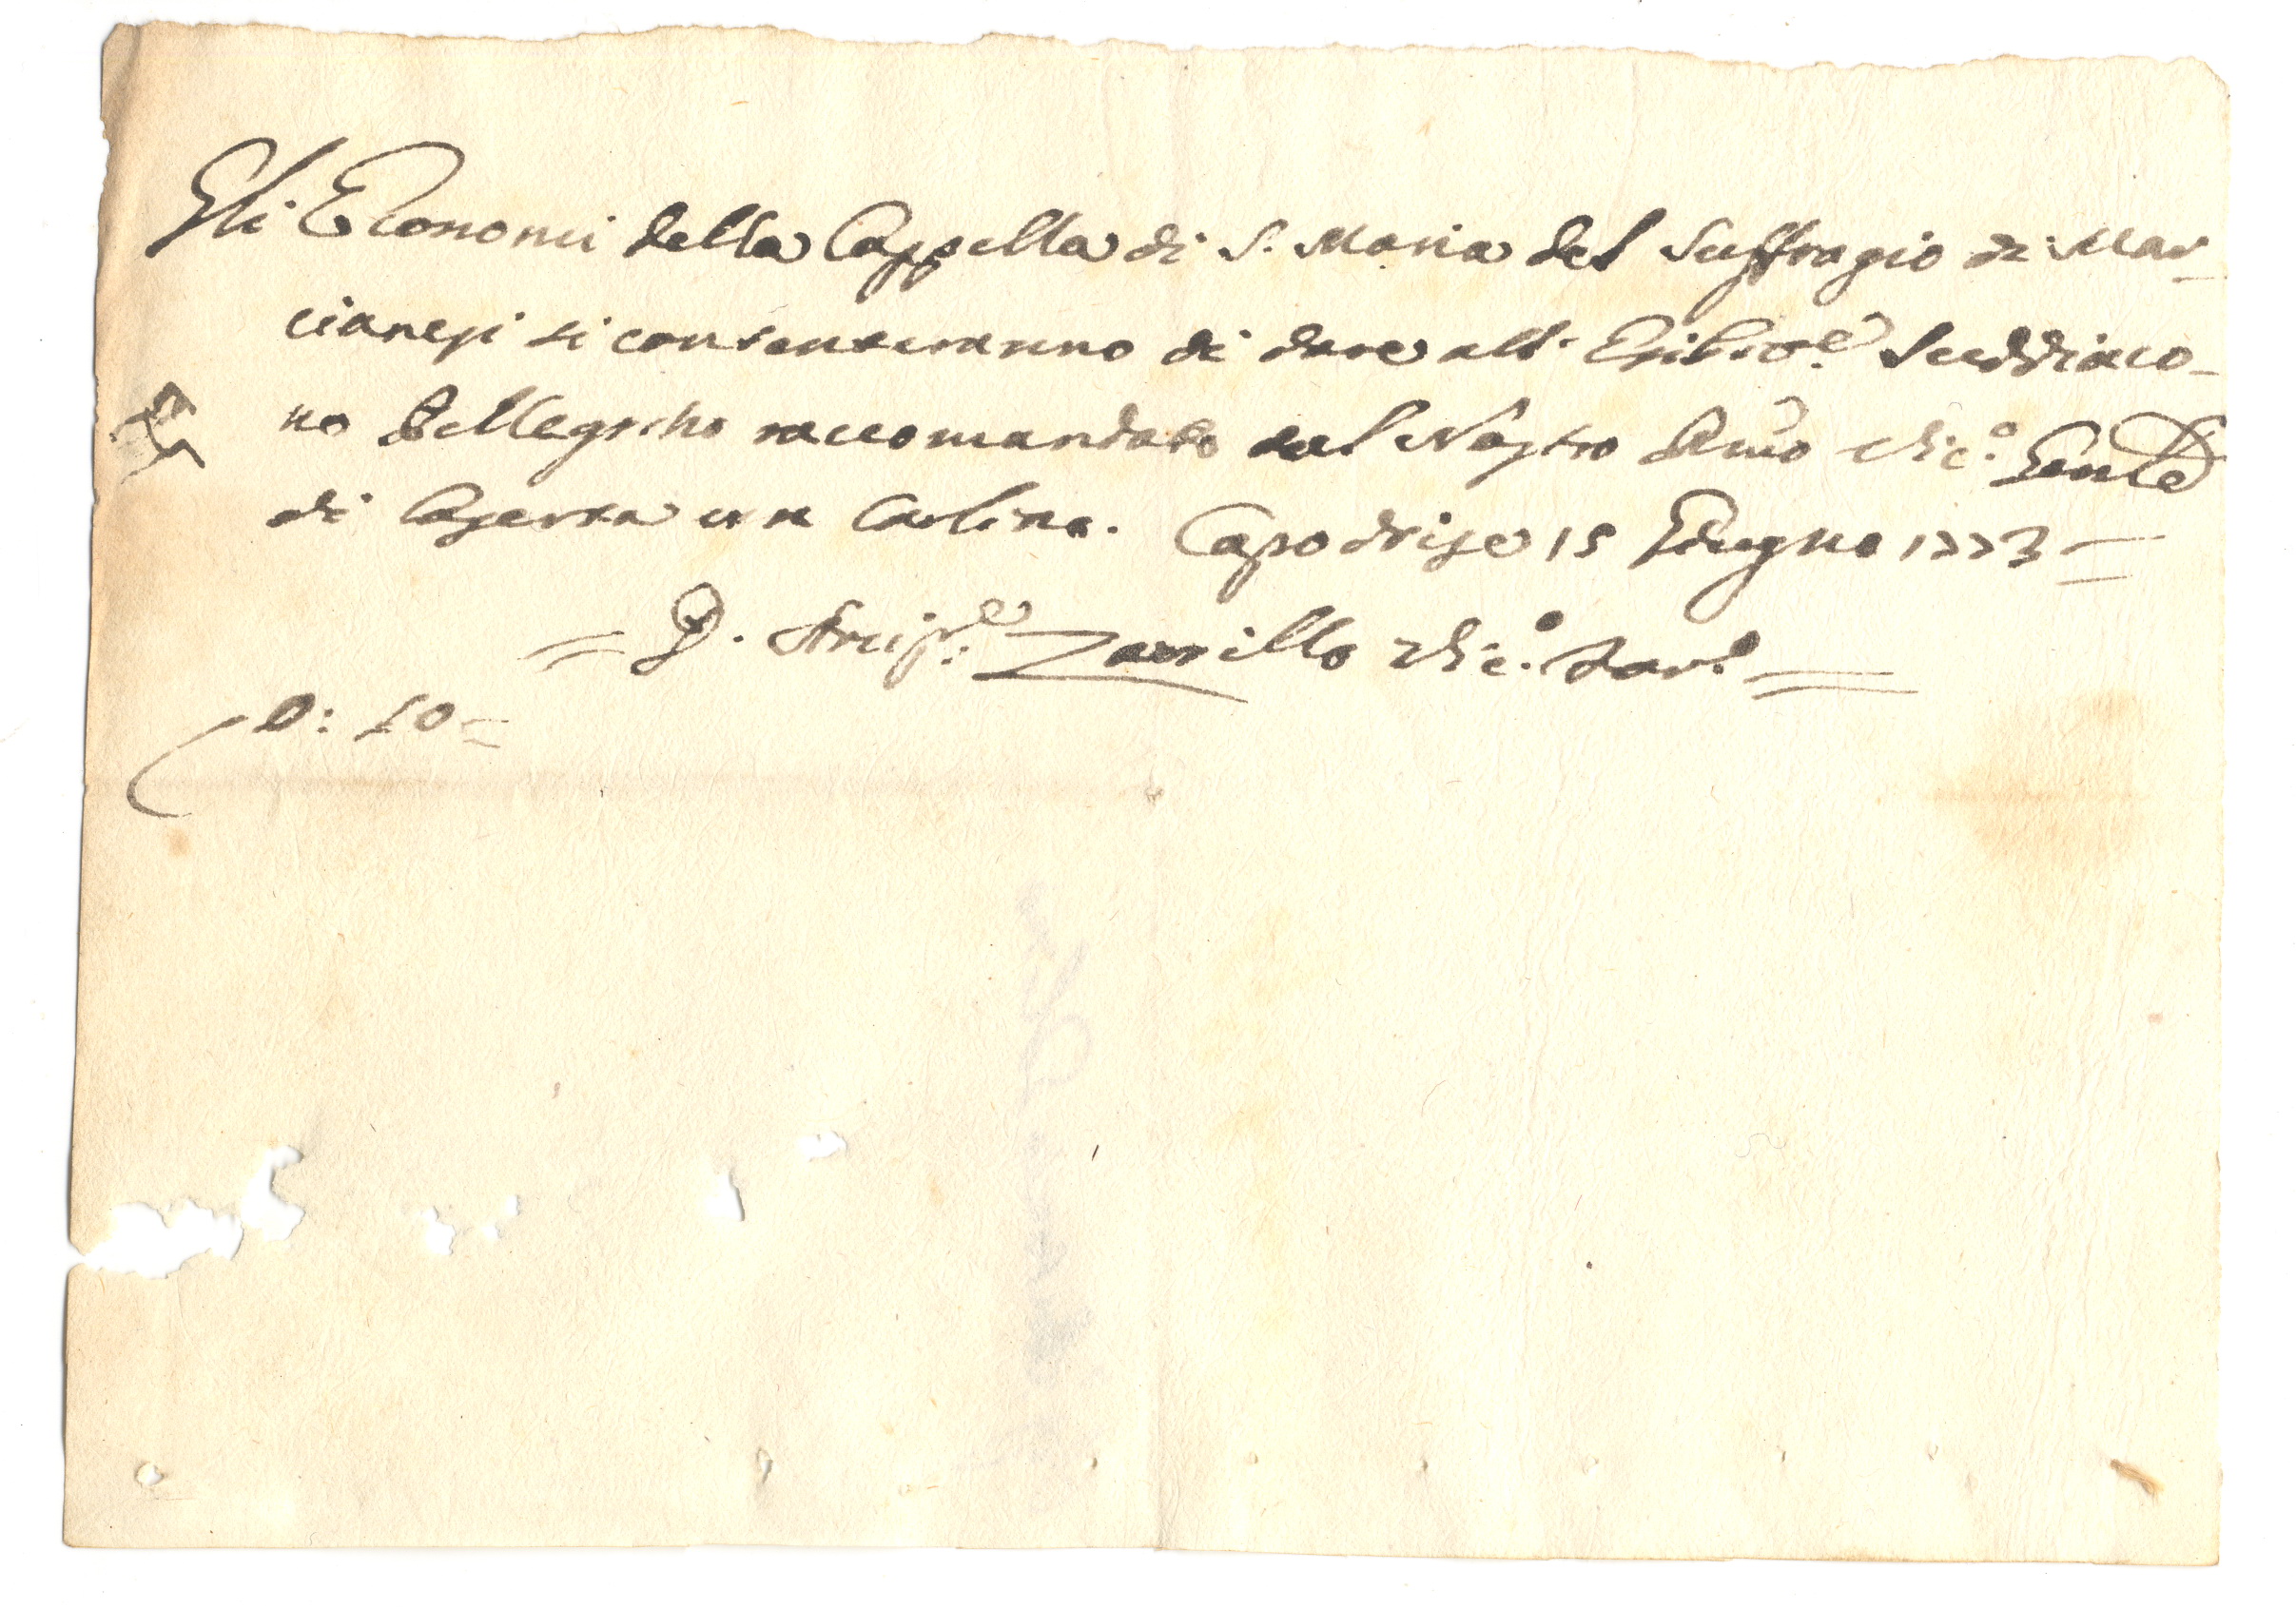 Gli Economi della Cappella di S. Maria del Suffragio di Mar-
cianesi si contenteranno di dare all' Esibre. Suddiaco-
no Pellegrino raccomandato dal Nostro Vic.o Genle
di Caserta un Carlino. Capodrise 15 Giugno 1773 =
= D. Arcip.e Zarrillo Vic.o For.o =
D: 10 =